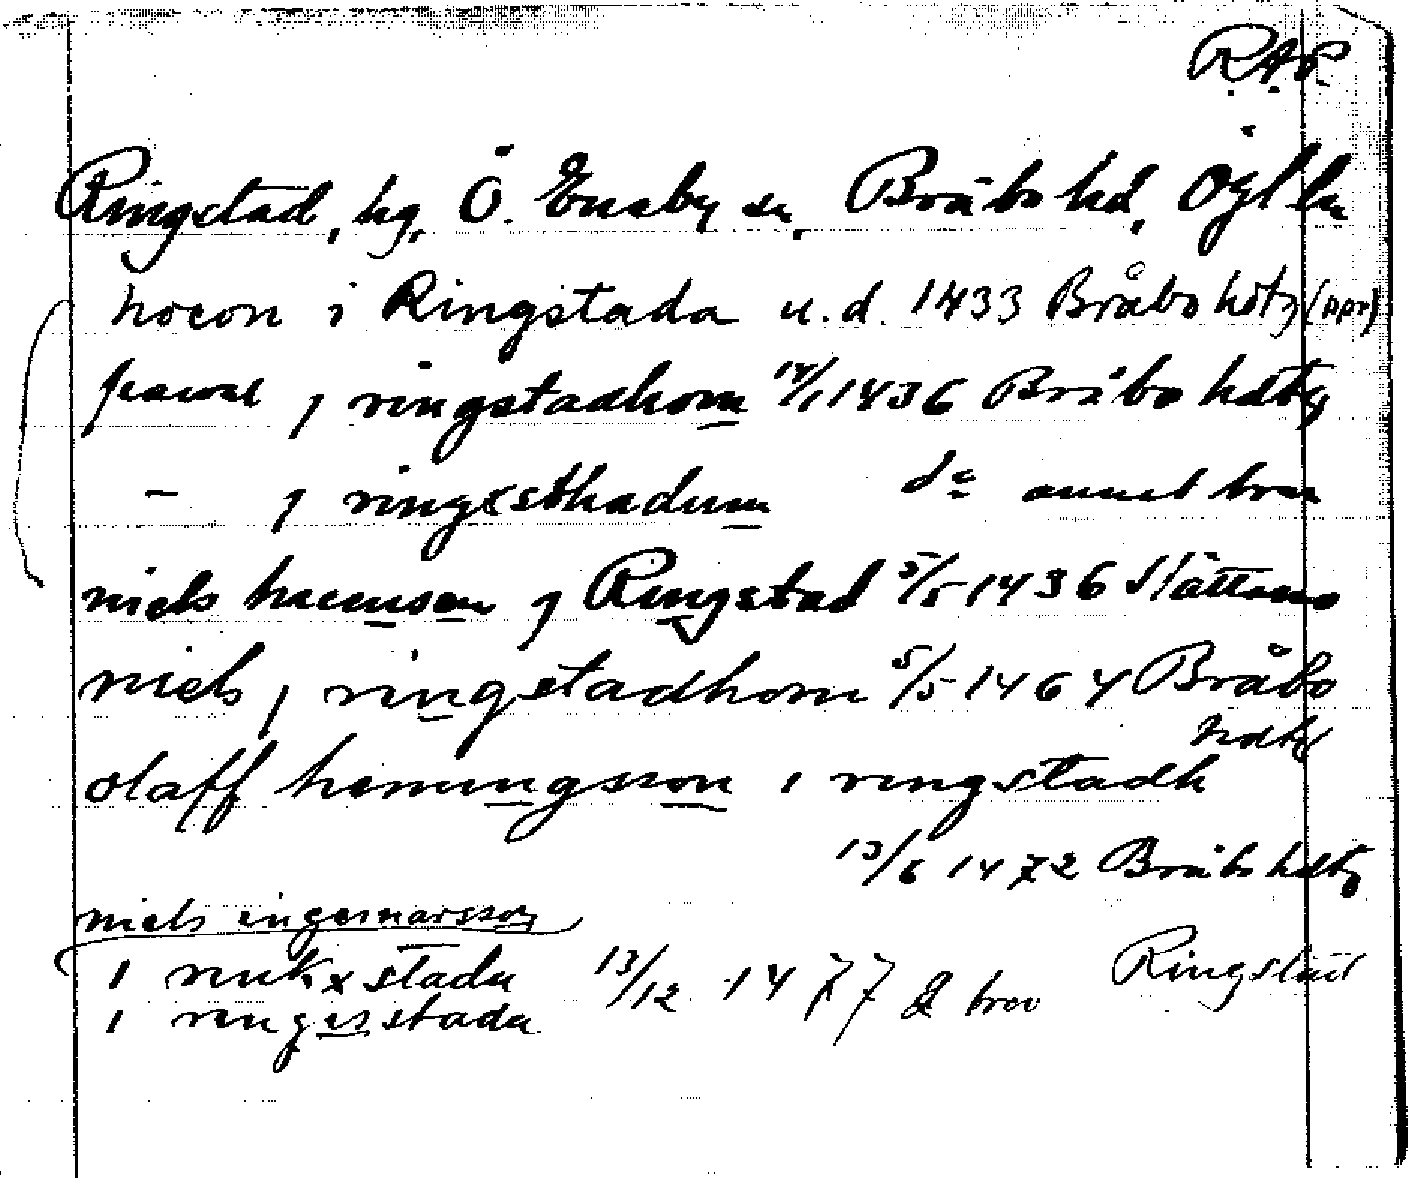 R.A.P.
Ringstad, hg, Ö. Eneby sn, Bråbo hd, Ögl ln
hocon i Ringstada u.d. 1433 Bråbo hdtg (RAP)
pawal j ringstadhom 14/1 1436 Bråbo hdtg
- j ringxsthadum do annat brev
niels j Ringstad 5/5 1436
niels j ringstadhom 5/5 1464 Bråbo
hdtg
olaff hemingsson i ringstadh
13/6 1472 Bråbo hdtg
niels ingemarsson
i rinkxstada 13/12 1477 2 brev Ringstad
i ringisstada